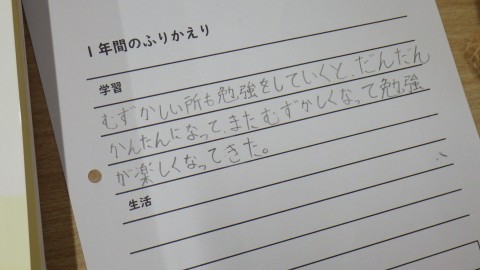 1年間のふりかえり
学習
むずかしい所も勉強をしていくと、だんだん
かんたんになって、またむずかしくなって勉強
が楽しくなってきた。
生活